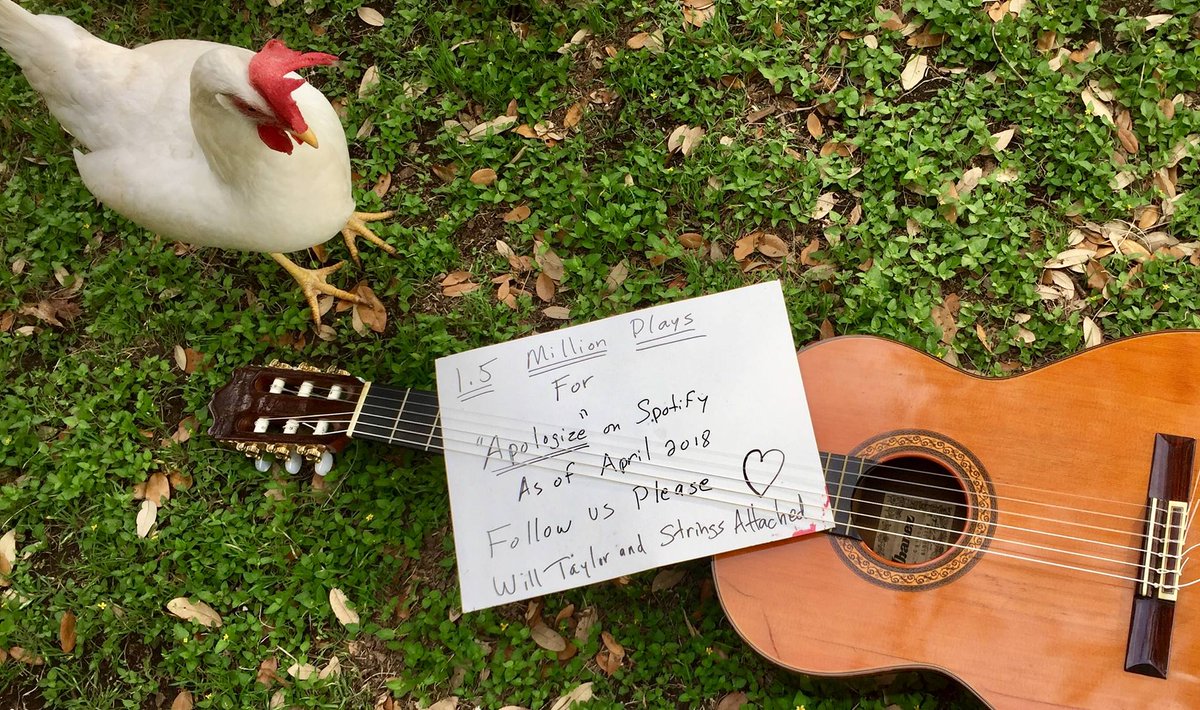 1.5 Million Plays
For
"Apologize" on Spotify
As of April 2018
Follow us please
Will Taylor and Strings Attached
Ibanez